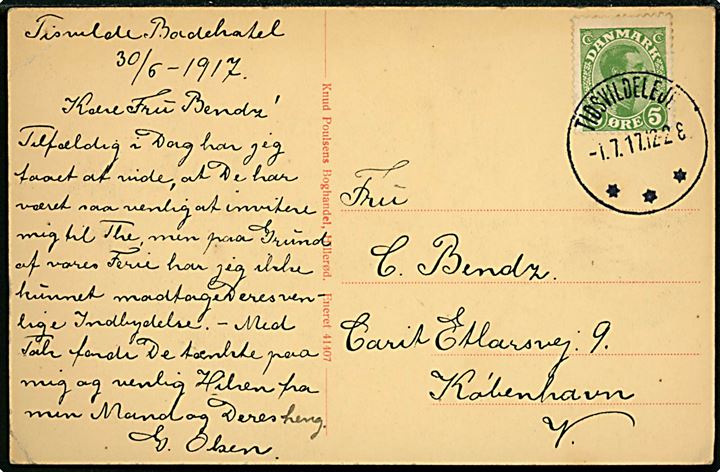 Tisvilde Badehotel
30/6-1917.
Kære Fru Bendz!
Tilfældig i Dag har jeg
faaet at vide, at De har
været saa venlig at invitere
mig til The, men paa Grund
af vores Ferie har jeg ikke
kunnet modtage Deres ven-
lige Indbydelse. - Med
Tak fordi De tænkte paa
mig og venlig Hilsen fra
min Mand og Deres heng.
E. Olsen.
Knud Poulsens Boghandel, Hillerød. Eneret 41407
DANMARK
5
ØRE
TIDSVILDELEJE
-1.7.17.12-2 E.
Fru
C. Bendz.
Carit Etlarsvej 9.
København
V.